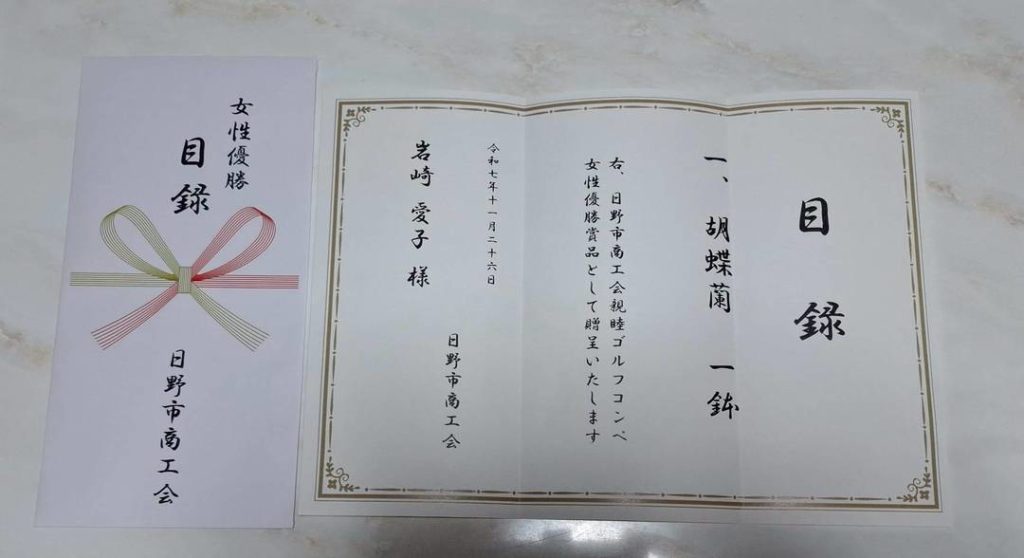 女性優勝
目録
日野市商工会
目録
一、胡蝶蘭 一鉢
右、日野市商工会親睦ゴルフコンペ
女性優勝賞品として贈呈いたします
令和七年十一月二十六日
日野市商工会
岩崎 愛子 様